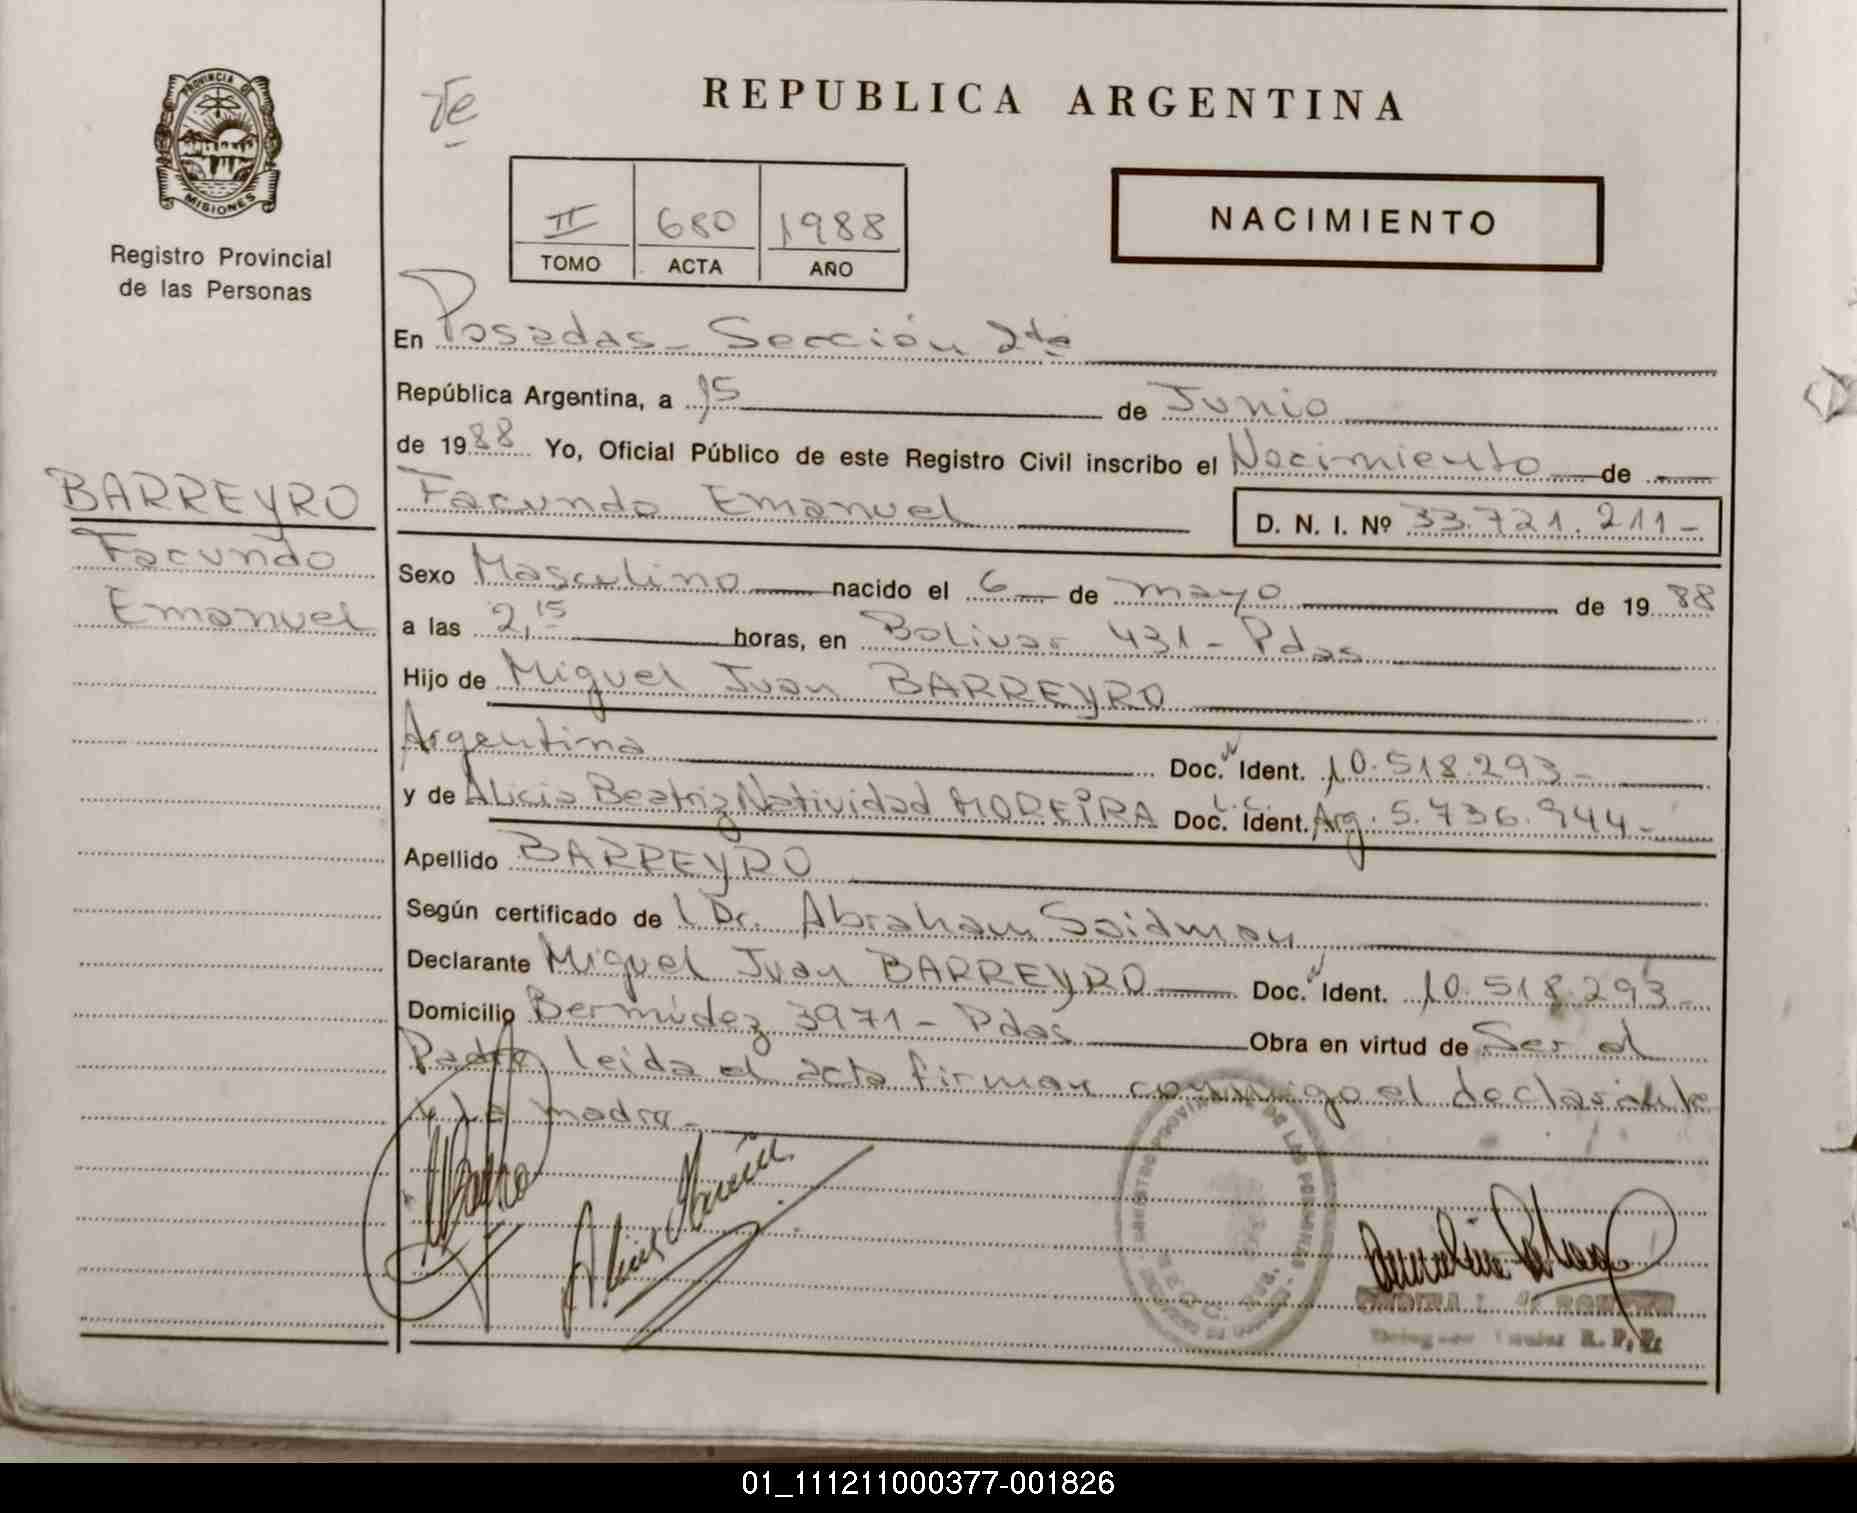 PROVINCIA DE
MISIONES
Registro Provincial
de las Personas
REPUBLICA ARGENTINA
II 680 1988
TOMO ACTA AÑO
NACIMIENTO
En Posadas - Sección 2da
República Argentina, a 15 de Junio
de 1988 Yo, Oficial Público de este Registro Civil inscribo el Nacimiento de
BARREYRO
Facundo
Emanuel
Facundo Emanuel D. N. I. Nº 33.721.211-
Sexo Masculino nacido el 6 de mayo de 1988
a las 2,15 horas, en Bolivar 431 - Pdas
Hijo de Miguel Juan BARREYRO
Argentina Doc. Ident. 10.518.293-
y de Alicia Beatriz Natividad MOREIRA Doc. Ident. L.C. Arg. 5.736.944-
Apellido BARREYRO
Según certificado de l Dr. Abraham Saidman
Declarante Miguel Juan BARREYRO Doc. Ident. 10.518.293-
Domicilio Bermúdez 3971 - Pdas Obra en virtud de Ser el
Padre leida el acta firman conmigo el declarante
y la madre -
01_111211000377-001826